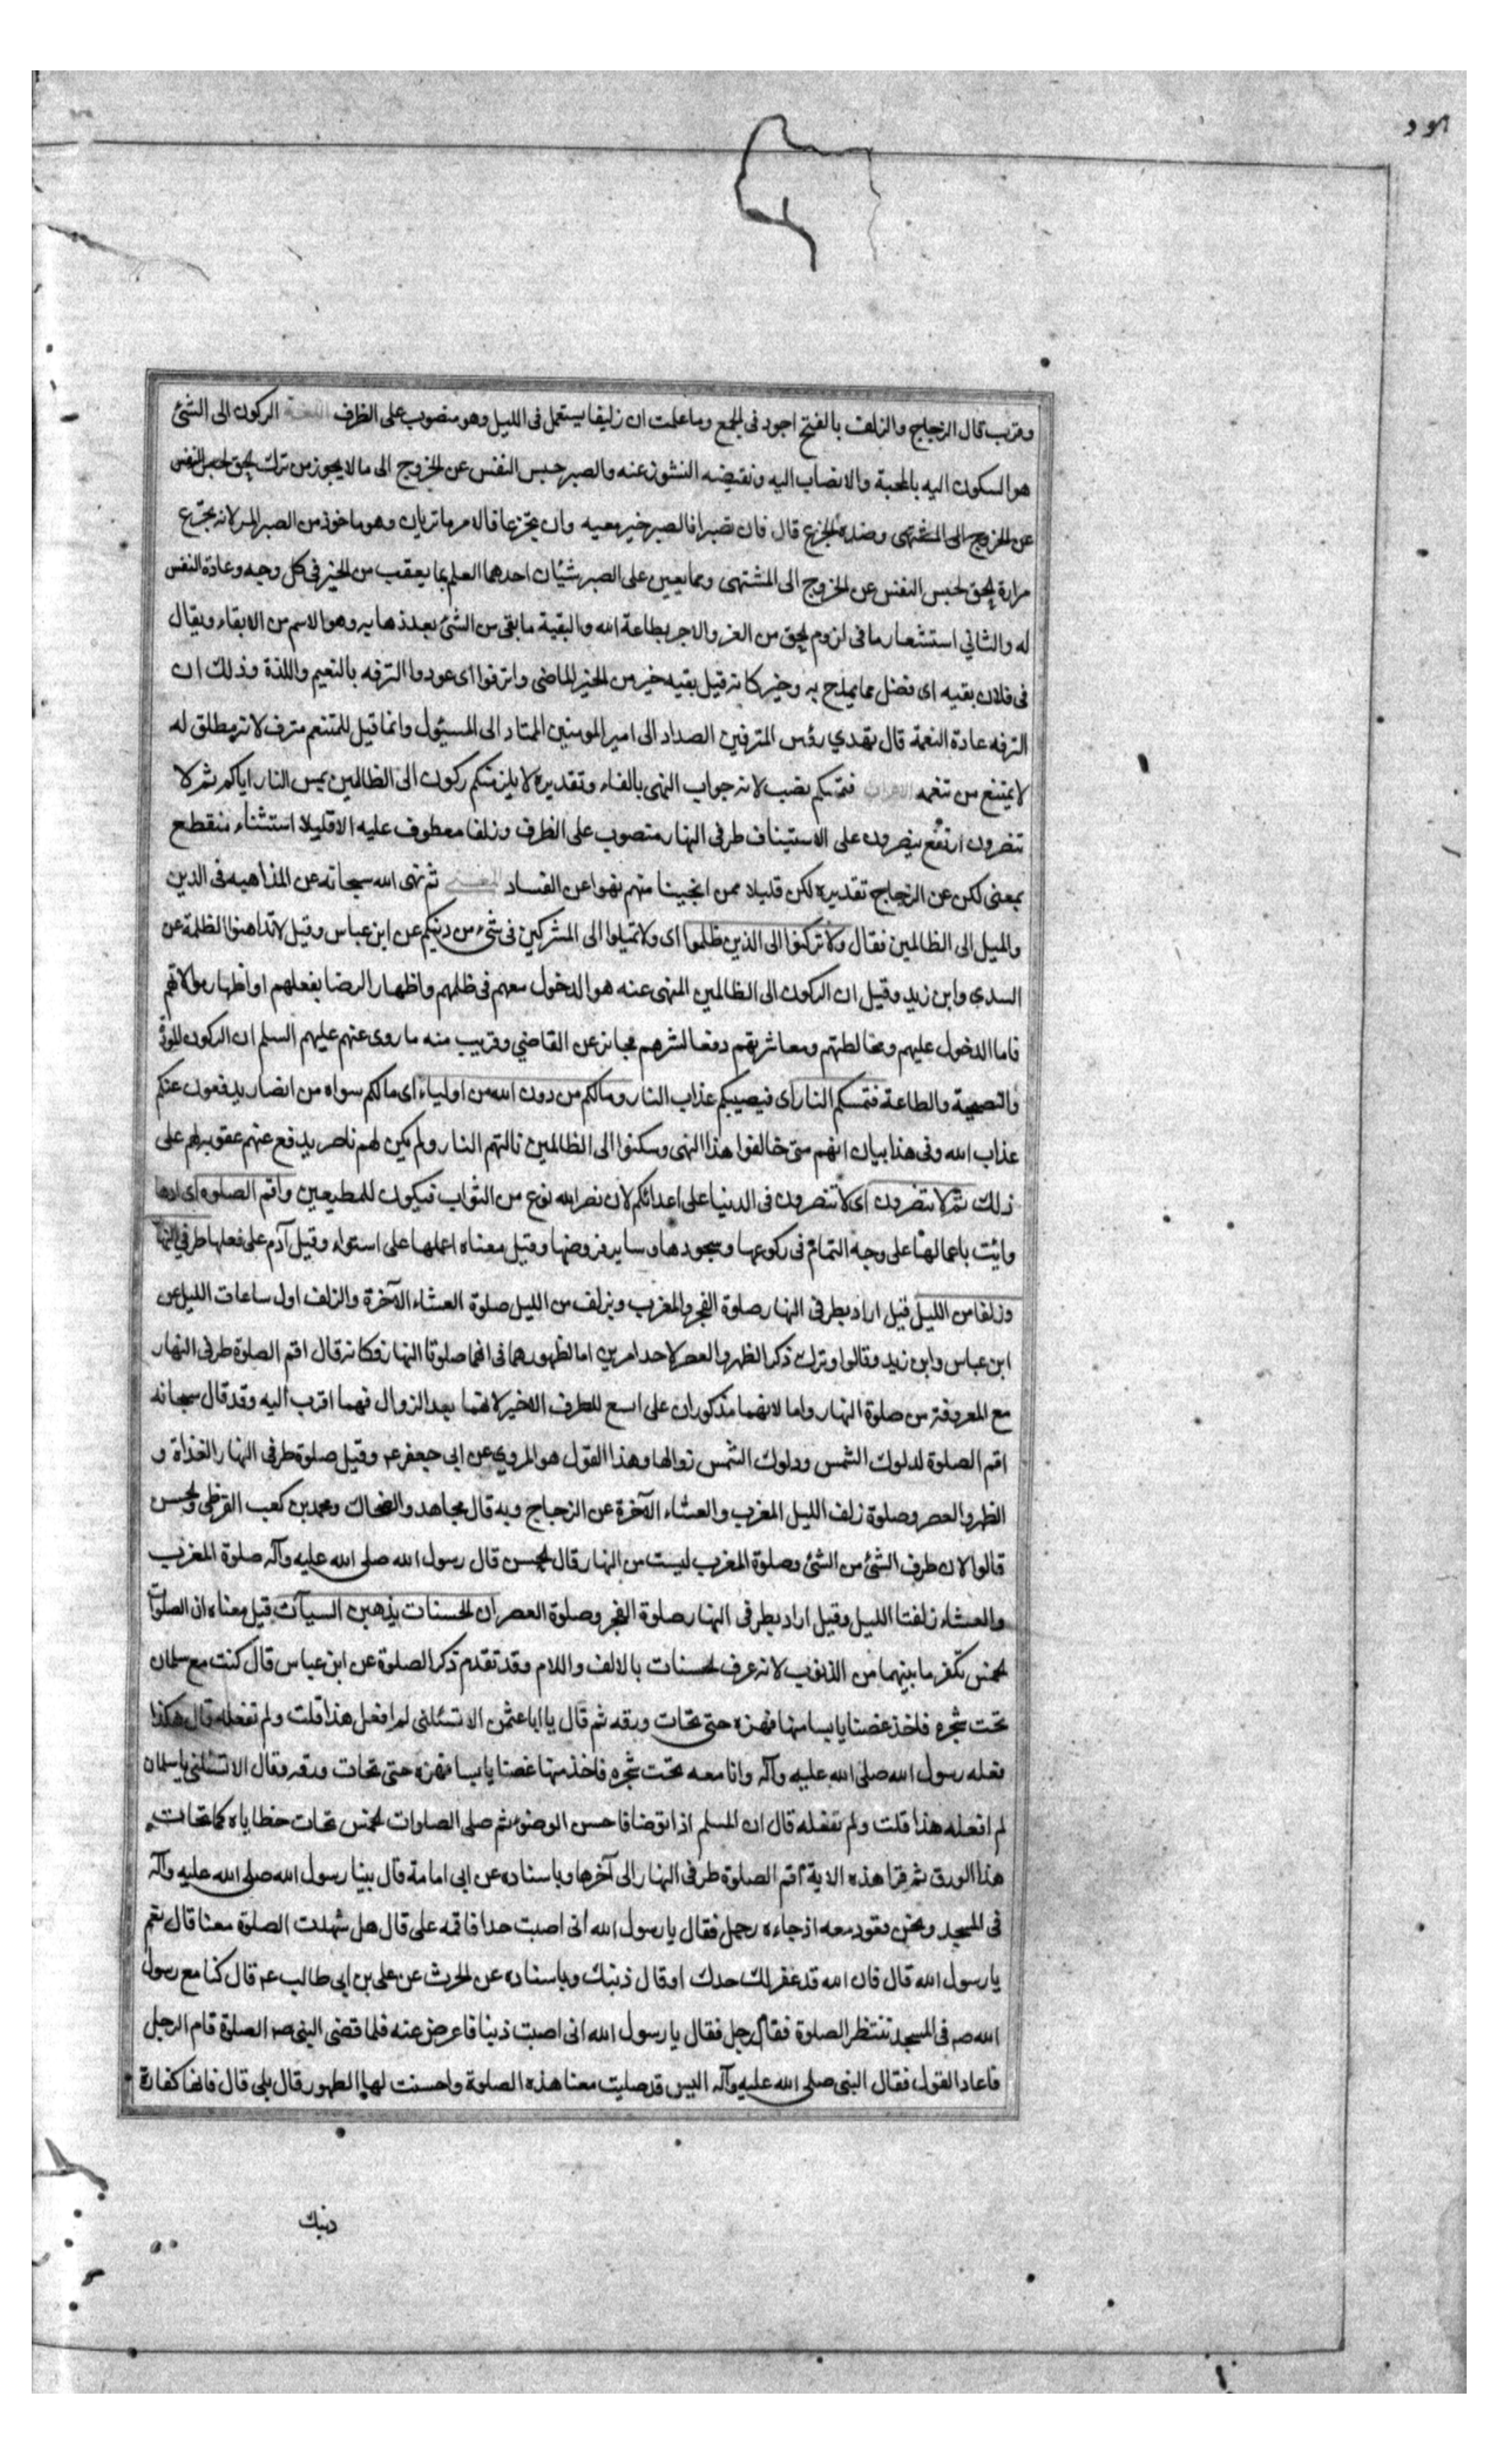 هود
وقرب قال الزجاج والزلف بالفتح اجود فى الجمع وما علمت ان زليفا يستعمل فى الليل وهو منصوب على الظرف اللغة الركون الى الشئ
هو السكون اليه بالمحبة والانصاب اليه ونقيضه النشوز عنه والصبر حبس النفس عن الخروج الى ما لا يجوز من ترك الحق لحبس النفس
عن الخروج الى المشتهى وضده الجزع قال فان تصبرا فالصبر خير مغبه وان تجزعا فالامر ما تريان وهو ماخوذ من الصبر المر لانه تجرع
مرارة الحق لحبس النفس عن الخروج الى المشتهى ومما يعين على الصبر شيئان احدهما العلم بما يعقب من الخير فى كل وجه وعادة النفس
له والثاني استشعار ما فى لزوم الحق من العز والاجر بطاعة الله والبقية ما بقى من الشئ بعد ذهابه وهو الاسم من الابقاء ويقال
فى فلان بقيه اى فضل مما يمدح به وخير كانه قيل بقيه خير من الخير الماضى واترفوا اى عودوا الترفه بالنعيم واللذة وذلك ان
الترفه عادة النعمة قال يهدي رؤس المترفين الصداد الى امير المومنين الممتاد الى المسئول وانما قيل للمتنعم مترف لانه مطلق له
لا يمتنع من تنعمه الاعراب فتمسكم نصب لانه جواب النهى بالفاء وتقديره لا يلزمنكم ركون الى الظالمين يمس النار اياكم ثم لا
تنصرون ارتفع ينصرون على الاستيناف طرفى النهار منصوب على الظرف وزلفا معطوف عليه الا قليلا استثناء منقطع
بمعنى لكن عن الزجاج تقديره لكن قليلا ممن انجينا منهم نهوا عن الفساد المعنى ثم نهى الله سبحانه عن المذاهبه فى الدين
والميل الى الظالمين فقال ولا تركنوا الى الذين ظلموا اى ولا تميلوا الى المشركين فى شىء من دينكم عن ابن عباس وقيل لا تداهنوا الظلمة عن
السدي وابن زيد وقيل ان الركون الى الظالمين المنهى عنه هو الدخول معهم فى ظلمهم واظهار الرضا بفعلهم او اظهار موالاتهم
فاما الدخول عليهم ومخالطتهم ومعاشرتهم دفعا لشرهم فجائز عن القاضي وقريب منه ما روى عنهم عليهم السلم ان الركون المودة
والنصيحة والطاعة فتمسكم النار اى فيصيبكم عذاب النار وما لكم من دون الله من اولياء اى ما لكم سواه من انصار يدفعون عنكم
عذاب الله وفى هذا بيان انهم متى خالفوا هذا النهى وسكنوا الى الظالمين نالتهم النار ولم يكن لهم ناصر يدفع عنهم عقوبة لهم على
ذلك ثم لا تنصرون اى لا تنصرون فى الدنيا على اعدائكم لان نصر الله نوع من الثواب فيكون للمطيعين واقم الصلوه اى ادها
وائت باعمالها على وجه التمام فى ركوعها وسجودها وساير فروضها وقيل معناه اعملها على استواء وقيل آدم على فعلها طرفي النهار
وزلفا من الليل قيل اراد بطرفى النهار صلوة الفجر والمغرب وبزلف من الليل صلوة العشاء الآخرة والزلف اول ساعات الليل عن
ابن عباس وابن زيد وقالوا وترك ذكر الظهر والعصر لاحد امرين اما لظهورهما فى انهما صلوتا النهار فكانه قال اقم الصلوة طرفى النهار
مع المعروفة من صلوة النهار واما لانهما مذكوران على اسع للطرف الاخير لانهما بعد الزوال فهما اقرب اليه وقد قال سبحانه
اقم الصلوة لدلوك الشمس ودلوك الشمس زوالها وهذا القول هو المروي عن ابى جعفر عه وقيل صلوة طرفى النهار الغداة و
الظهر والعصر وصلوة زلف الليل المغرب والعشاء الآخرة عن الزجاج وبه قال مجاهد والضحاك ومحمد بن كعب القرظى والحسن
قالوا لان طرف الشئ من الشئ وصلوة المغرب ليست من النهار قال الحسن قال رسول الله صلى الله عليه وآله صلوة المغرب
والعشاء زلفتا الليل وقيل اراد بطرفى النهار صلوة الفجر وصلوة العصر ان الحسنات يذهبن السيآت قيل معناه ان الصلوات
الخمس تكفر ما بينهما من الذنوب لانه عرف الحسنات بالالف واللام وقد تقدم ذكر الصلوة عن ابن عباس قال كنت مع سلمان
تحت شجره فاخذ غصنا يابسا منها فهزه حتى تحات ورقه ثم قال يا ابا عثمن الا تسئلنى لم افعل هذا قلت ولم تفعله قال هكذا
فعله رسول الله صلى الله عليه وآله وانا معه تحت شجره فاخذ منها غصنا يابسا فهزه حتى تحات ورقه وقال الا تسئلنى يا سلمان
لم افعله هذا قلت ولم تفعله قال ان المسلم اذا توضا فاحسن الوضوء ثم صلى الصلوات الخمس تحات خطاياه كما تحات
هذا الورق ثم قرا هذه الاية اقم الصلوة طرفى النهار الى آخرها وباسناده عن ابى امامة قال بينا رسول الله صلى الله عليه وآله
فى المسجد ونحن قعود معه اذ جاءه رجل فقال يا رسول الله انى اصبت حدا فاقمه على قال هل شهدت الصلوة معنا قال نعم
يا رسول الله قال فان الله قد غفر لك حدك او قال ذنبك وباسناده عن الحرث عن على بن ابى طالب عه قال كنا مع رسول
الله صه فى المسجد ننتظر الصلوة فقال رجل فقال يا رسول الله انى اصبت ذنبا فاعرض عنه فلما قضى النبى صه الصلوة قام الرجل
فاعاد القول فقال النبى صلى الله عليه وآله اليس قد صليت معنا هذه الصلوة واحسنت لها الطهور قال بلى قال فانها كفارة
ذنبك